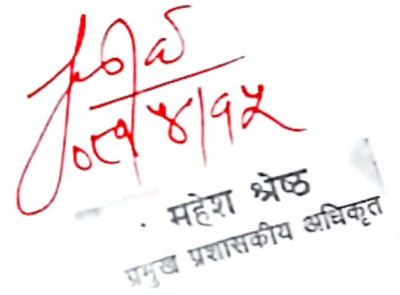 ०८१/४/१५
महेश श्रेष्ठ
प्रमुख प्रशासकीय अधिकृत